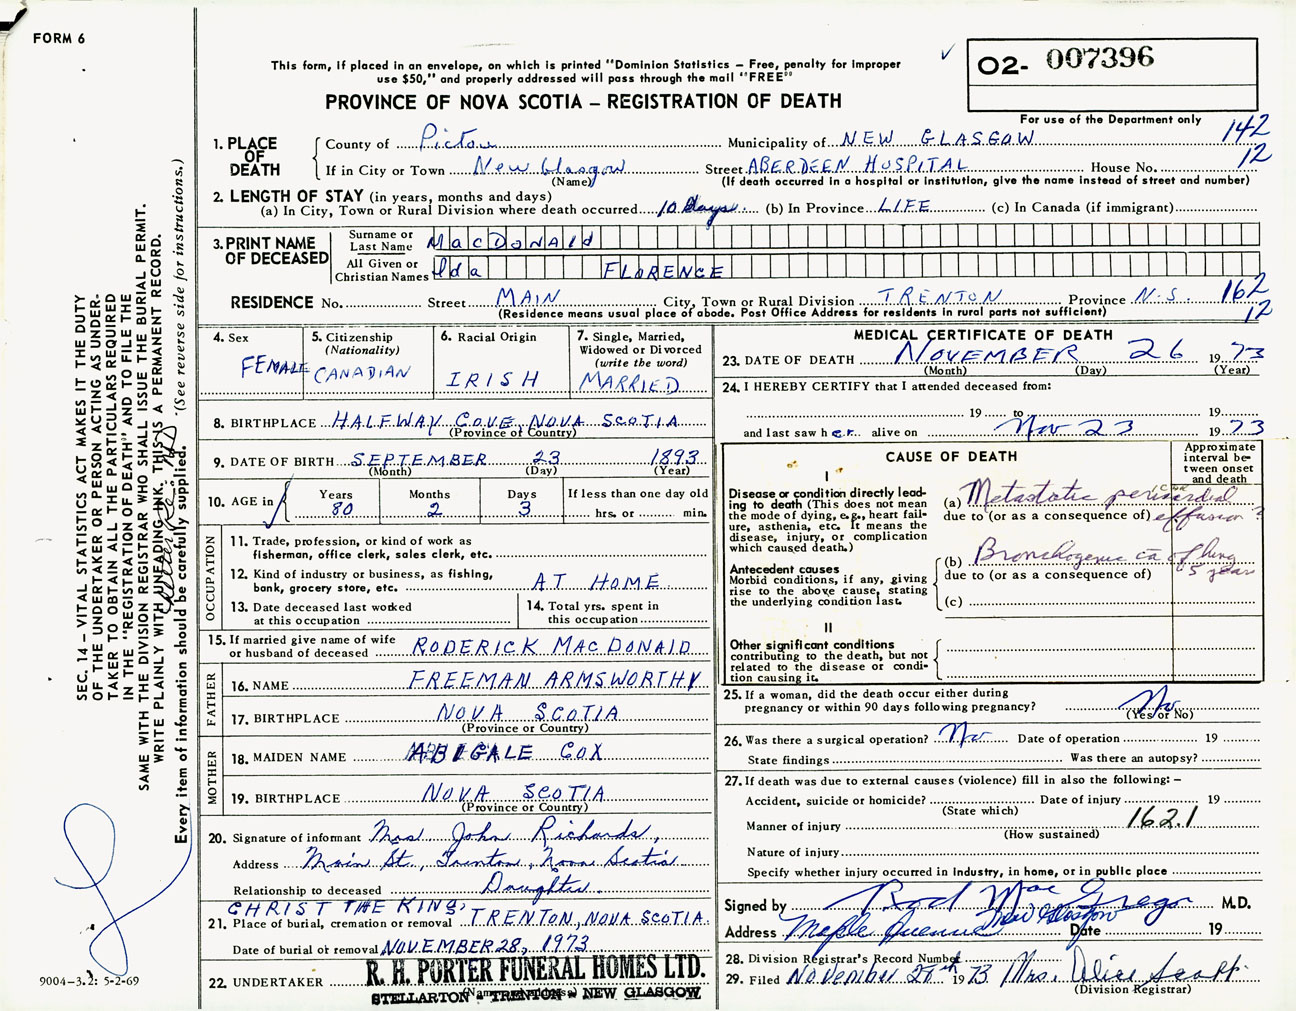 FORM 6
This form, if placed in an envelope, on which is printed "Dominion Statistics – Free, penalty for improper
use $50," and properly addressed will pass through the mail "FREE"
PROVINCE OF NOVA SCOTIA – REGISTRATION OF DEATH
O2- 007396
For use of the Department only
142
12
1. PLACE OF DEATH
County of Pictou Municipality of NEW GLASGOW
If in City or Town New Glasgow Street ABERDEEN HOSPITAL House No.
(Name) (If death occurred in a hospital or institution, give the name instead of street and number)
2. LENGTH OF STAY (in years, months and days)
(a) In City, Town or Rural Division where death occurred 10 days (b) In Province LIFE (c) In Canada (if immigrant)
3. PRINT NAME OF DECEASED
Surname or Last Name MacDONAld
All Given or Christian Names Ida FLORENCE
RESIDENCE No. Street MAIN City, Town or Rural Division TRENTON Province N.S. 162
(Residence means usual place of abode. Post Office Address for residents in rural parts not sufficient) 12
4. Sex FEMALE
5. Citizenship (Nationality) CANADIAN
6. Racial Origin IRISH
7. Single, Married, Widowed or Divorced (write the word) MARRIED
8. BIRTHPLACE HALFWAY COVE NOVA SCOTIA
(Province of Country)
9. DATE OF BIRTH SEPTEMBER 23 1893
(Month) (Day) (Year)
10. AGE in Years 80 Months 2 Days 3 If less than one day old hrs. or min.
OCCUPATION
11. Trade, profession, or kind of work as
fisherman, office clerk, sales clerk, etc.
12. Kind of industry or business, as fishing,
bank, grocery store, etc. AT HOME
13. Date deceased last worked
at this occupation
14. Total yrs. spent in
this occupation
15. If married give name of wife
or husband of deceased RODERICK MACDONALD
FATHER
16. NAME FREEMAN ARMSWORTHY
17. BIRTHPLACE NOVA SCOTIA
(Province or Country)
MOTHER
18. MAIDEN NAME ABIGALE COX
19. BIRTHPLACE NOVA SCOTIA
(Province or Country)
20. Signature of informant Mrs. John Richards,
Address Main St., Trenton, Nova Scotia
Relationship to deceased Daughter.
CHRIST THE KING,
21. Place of burial, cremation or removal TRENTON, NOVA SCOTIA.
Date of burial or removal NOVEMBER 28, 1973
22. UNDERTAKER R. H. PORTER FUNERAL HOMES LTD.
STELLARTON - TRENTON - NEW GLASGOW
MEDICAL CERTIFICATE OF DEATH
23. DATE OF DEATH NOVEMBER 26 1973
(Month) (Day) (Year)
24. I HEREBY CERTIFY that I attended deceased from:
19 to 19
and last saw her alive on Nov 23 1973
CAUSE OF DEATH
Approximate interval between onset and death
I
Disease or condition directly lead-
ing to death (This does not mean
the mode of dying, e.g., heart fail-
ure, asthenia, etc. It means the
disease, injury, or complication
which caused death.)
(a) Metastatic pericardial
due to (or as a consequence of) effusion ?
Antecedent causes
Morbid conditions, if any, giving
rise to the above cause, stating
the underlying condition last.
(b) Bronchogenic ca of lung
due to (or as a consequence of) 5 year
(c)
II
Other significant conditions
contributing to the death, but not
related to the disease or condi-
tion causing it.
25. If a woman, did the death occur either during
pregnancy or within 90 days following pregnancy? No
(Yes or No)
26. Was there a surgical operation? No Date of operation 19
State findings Was there an autopsy?
27. If death was due to external causes (violence) fill in also the following: –
Accident, suicide or homicide? Date of injury 19
(State which)
Manner of injury 162.1
(How sustained)
Nature of injury
Specify whether injury occurred in Industry, in home, or in public place
Signed by Rod MacGregor M.D.
Address Maple Avenue New Glasgow Date 19
28. Division Registrar's Record Number
29. Filed NOVEMBER 27th 1973 Mrs. Alice Scott
(Division Registrar)
SEC. 14 – VITAL STATISTICS ACT MAKES IT THE DUTY
OF THE UNDERTAKER OR PERSON ACTING AS UNDER-
TAKER TO OBTAIN ALL THE PARTICULARS REQUIRED
IN THE "REGISTRATION OF DEATH" AND TO FILE THE
SAME WITH THE DIVISION REGISTRAR WHO SHALL ISSUE THE BURIAL PERMIT.
WRITE PLAINLY WITH UNFADING INK. THIS IS A PERMANENT RECORD.
Every item of information should be carefully supplied. (See reverse side for instructions.)
9004-3.2: 5-2-69